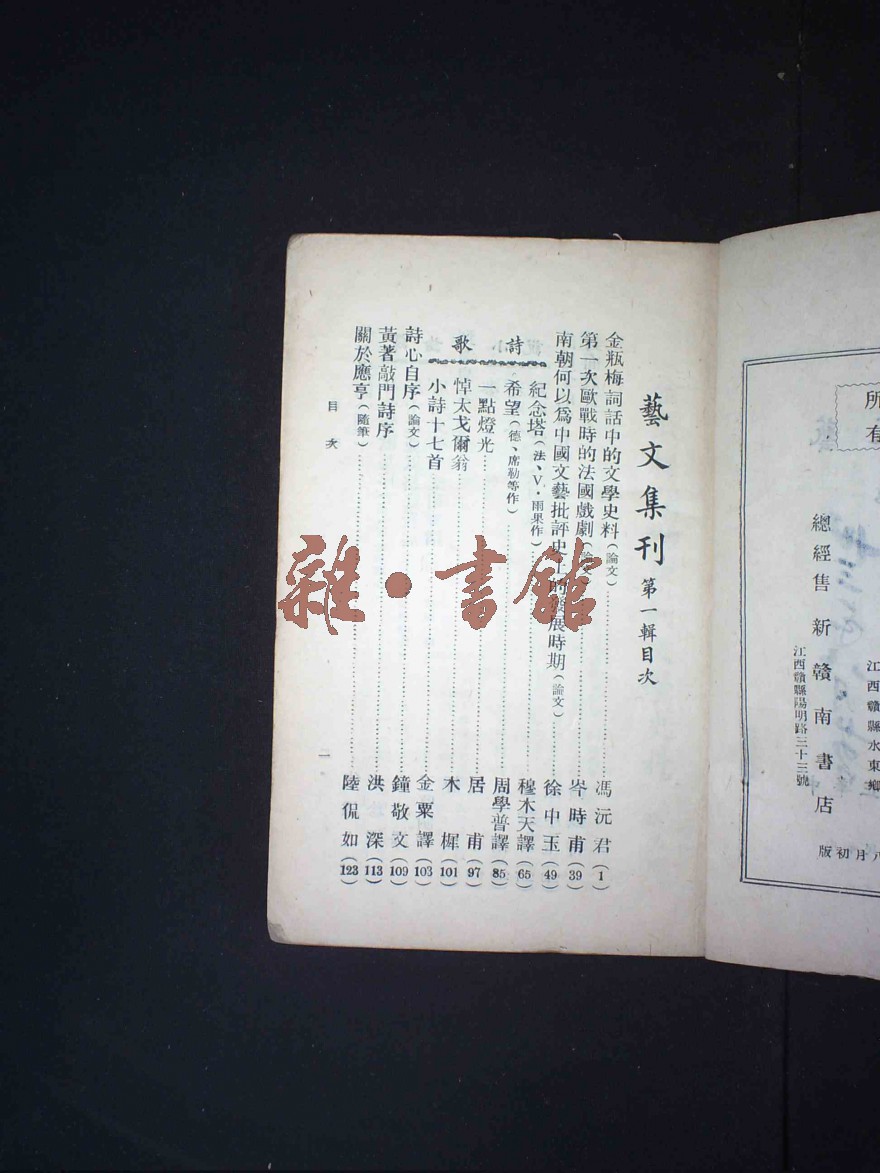 所
有
總經售 新贛南書店
江西贛縣陽明路三十三號
江西贛縣水東鄉
八月初版
藝文集刊 第一輯目次
金瓶梅詞話中的文學史料(論文)……馮沅君(1)
第一次歐戰時的法國戲劇(論文)……岑時甫(39)
南朝何以為中國文藝批評史上的發展時期(論文)……徐中玉(49)
詩歌
紀念塔(法、V·雨果作)……穆木天譯(65)
希望(德、席勒等作)……周學普譯(85)
一點燈光……居甫(97)
悼太戈爾翁……木樨(101)
小詩十七首……金粟譯(103)
詩心自序(論文)……鐘敬文(109)
黃著敲門詩序……洪深(113)
關於應亨(隨筆)……陸侃如(123)
目次
一
雜·書館